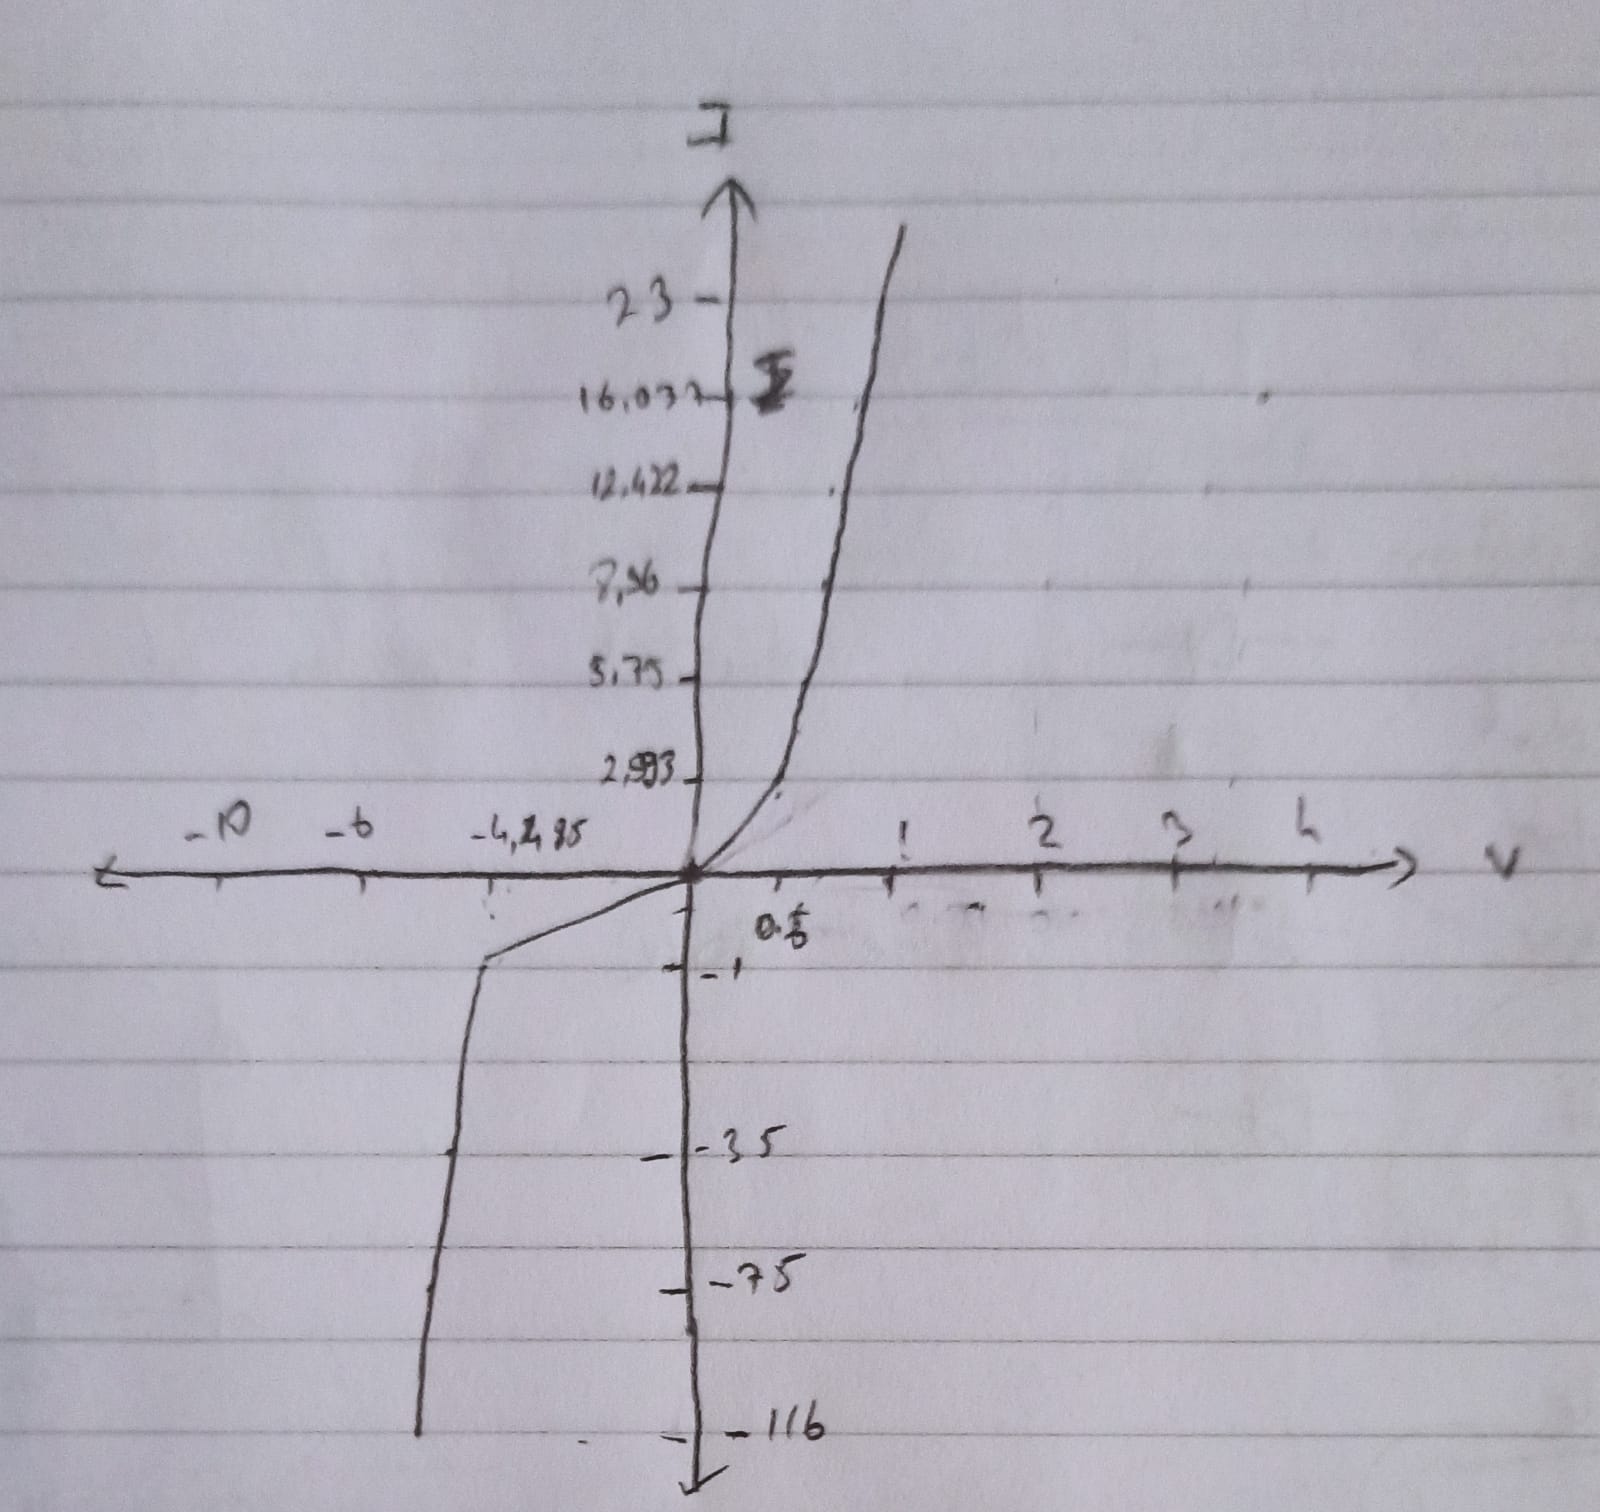 I
23
16,037
12,422
8,96
5,75
2,993
-10 -6 -4,285 1 2 3 4 V
0.5
-1
-35
-75
-116